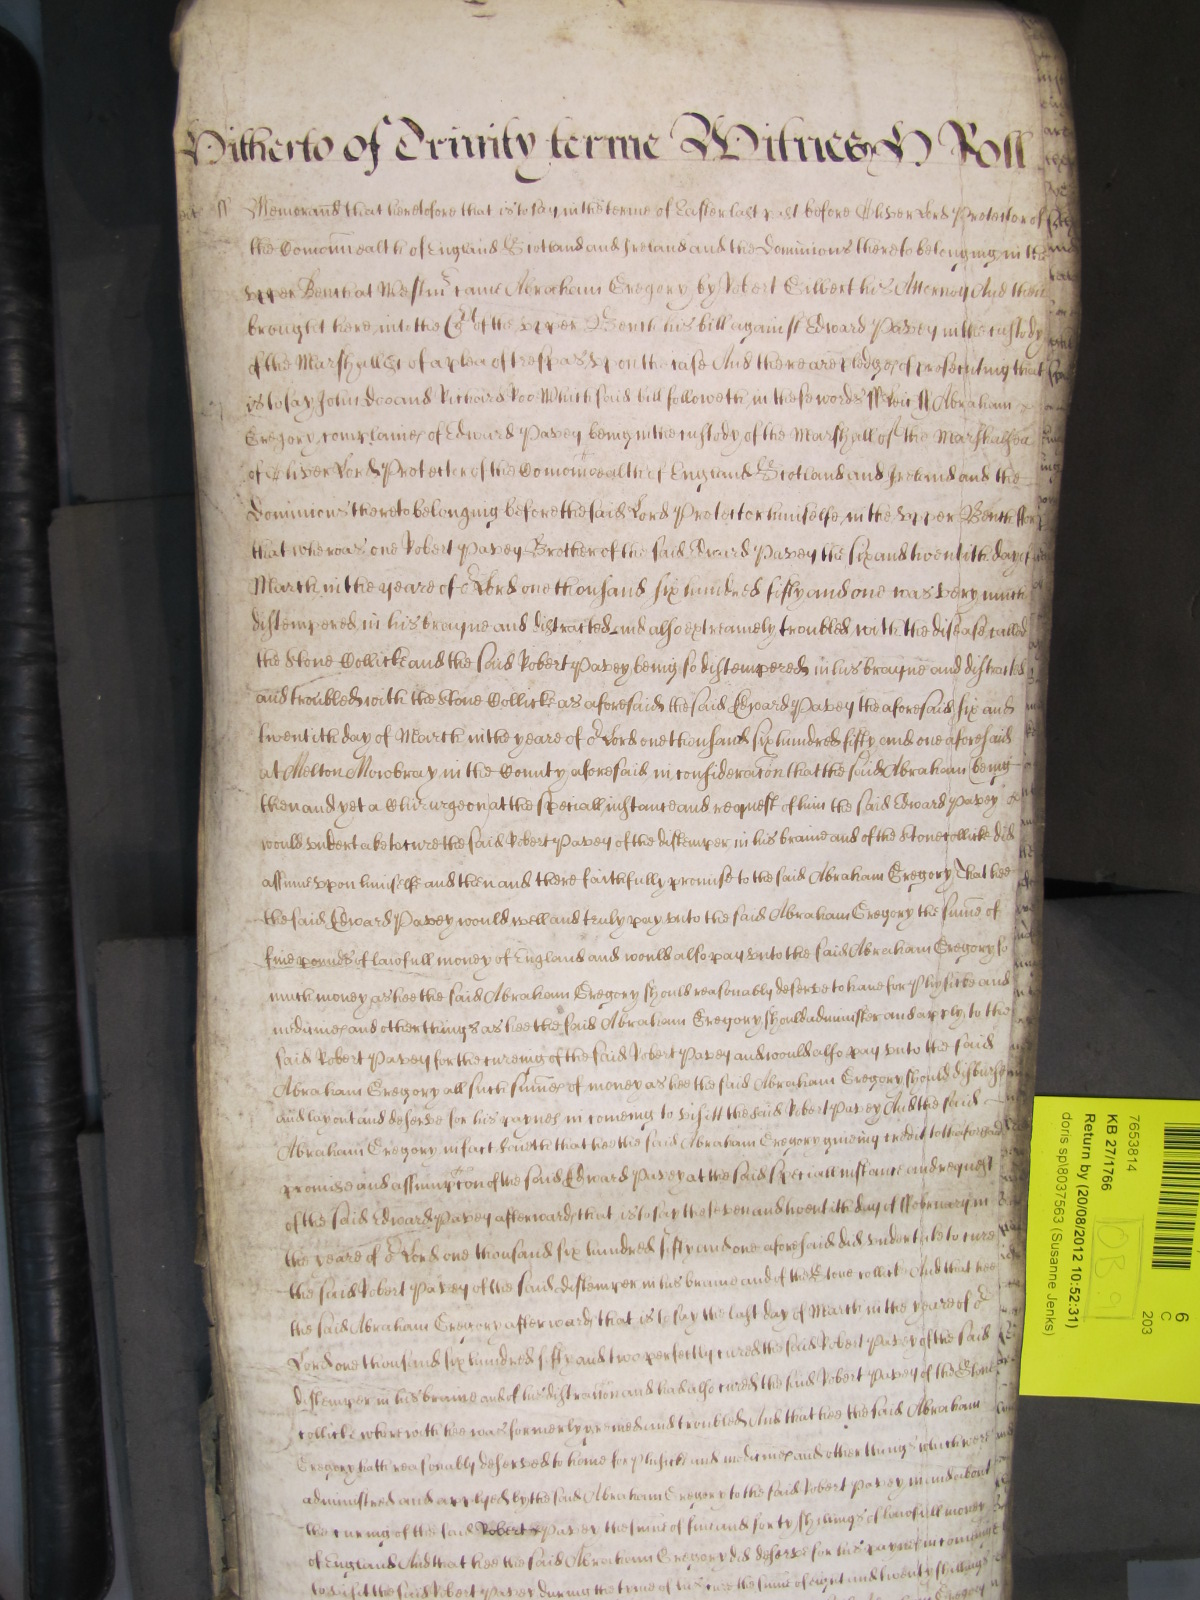 Hitherto of Trinity terme Witnes H Roll
ss Memorand that heretofore that is to say in the terme of Easter last past before Oliver Lord Protector of
the Comonwealth of England Scotland and Ireland and the Dominions thereto belonging in the
upper Bench at Westmr came Abraham Gregory by Robert Gilbert his Attorney And then
brought here into the Crt of the upper Bench his bill against Edward Pavey in the custody
of the Marshall &c of a plea of trespas upon the case And there are pledges of prosecuting that
is to say John Doo and Richard Roo Which said bill followeth in these words ss Leic ss Abraham
Gregory complaines of Edward Pavey being in the custody of the Marshall of the Marshalsea
of Oliver Lord Protector of the Comonwealth of England Scotland and Ireland and the
Dominions thereto belonging before the said Lord Protector himselfe in the upper Bench ffor
that whereas one Robert Pavey Brother of the said Edward Pavey the six and twentith day of
March in the yeare of or Lord one thousand six hundred fifty and one was very much
distempered in his brayne and distracted and also extreamely troubled with the disease called
the Stone Collicke and the said Robert Pavey being so distempered in his brayne and distracted
and troubled with the Stone Collicke as aforesaid the said Edward Pavey the aforesaid six and
twentith day of March in the yeare of or Lord one thousand six hundred fifty and one aforesaid
at Melton Mowbray in the County aforesaid in consideracon that the said Abraham being
then and yet a Chirurgeon at the speciall instance and request of him the said Edward Pavey
would undertake to cure the said Robert Pavey of the distemper in his braine and of the Stone collicke did
assume upon himselfe and then and there faithfully promise to the said Abraham Gregory That hee
the said Edward Pavey would well and truly pay unto the said Abraham Gregory the sume of
five pounds of lawfull money of England and would also pay unto the said Abraham Gregory so
much money as hee the said Abraham Gregory should reasonably deserve to have for Physicke and
medicines and other things as hee the said Abraham Gregory should administer and apply to the
said Robert Pavey for the cureing of the said Robert Pavey and would also pay unto the said
Abraham Gregory all such sumes of money as hee the said Abraham Gregory should disburse
and lay out and deserve for his paynes in comeing to visitt the said Robert Pavey And the said
Abraham Gregory in fact saith that hee the said Abraham Gregory giveing credit to the aforesaid
promise and assumpcon of the said Edward Pavey at the said speciall instance and request
of the said Edward Pavey afterwards that is to say the seven and twentith day of ffebruary in
the yeare of or Lord one thousand six hundred fifty and one aforesaid did undertake to cure
the said Robert Pavey of the said distemper in his braine and of the Stone collicke And that hee
the said Abraham Gregory afterwards that is to say the last day of March in the yeare of or
Lord one thousand six hundred fifty and two perfectly cured the said Robert Pavey of the said
distemper in his braine and of his distraction and had also cured the said Robert Pavey of the Stone
collicke wherewith hee was formerly greived and troubled And that hee the said Abraham
Gregory hath reasonably deserved to have for phisicke and medicines and other things which were
administred and applyed by the said Abraham Gregory to the said Robert Pavey in and about
the cureing of the said Robert Pavey the sume of five and forty shillings of lawfull money
of England And that hee the said Abraham Gregory did deserve for his paynes in comeinge
to visit the said Robert Pavey dureing the tyme of his cure the sume of eight and twenty shillings
7653814
KB 27/1766
Return by (20/08/2012 10:52:31)
doris sp\8037563 (Susanne Jenks)
6
C
203